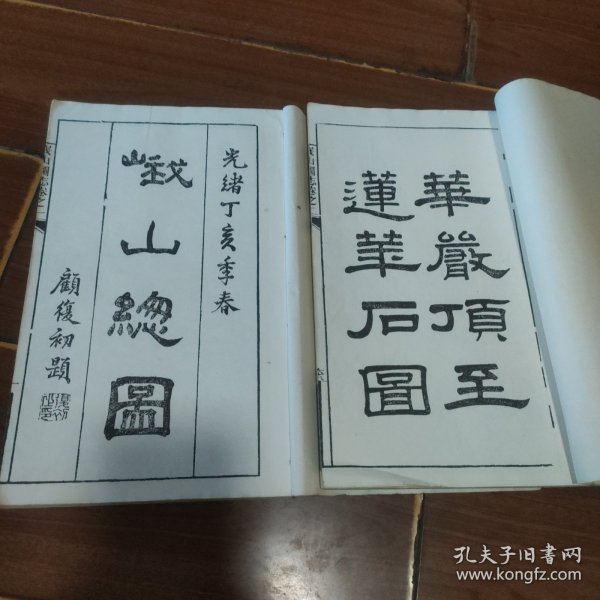 光緒丁亥季春
峨山總圖
顧復初題
華嚴頂至
蓮華石圖
孔夫子旧書网
www.kongfz.com